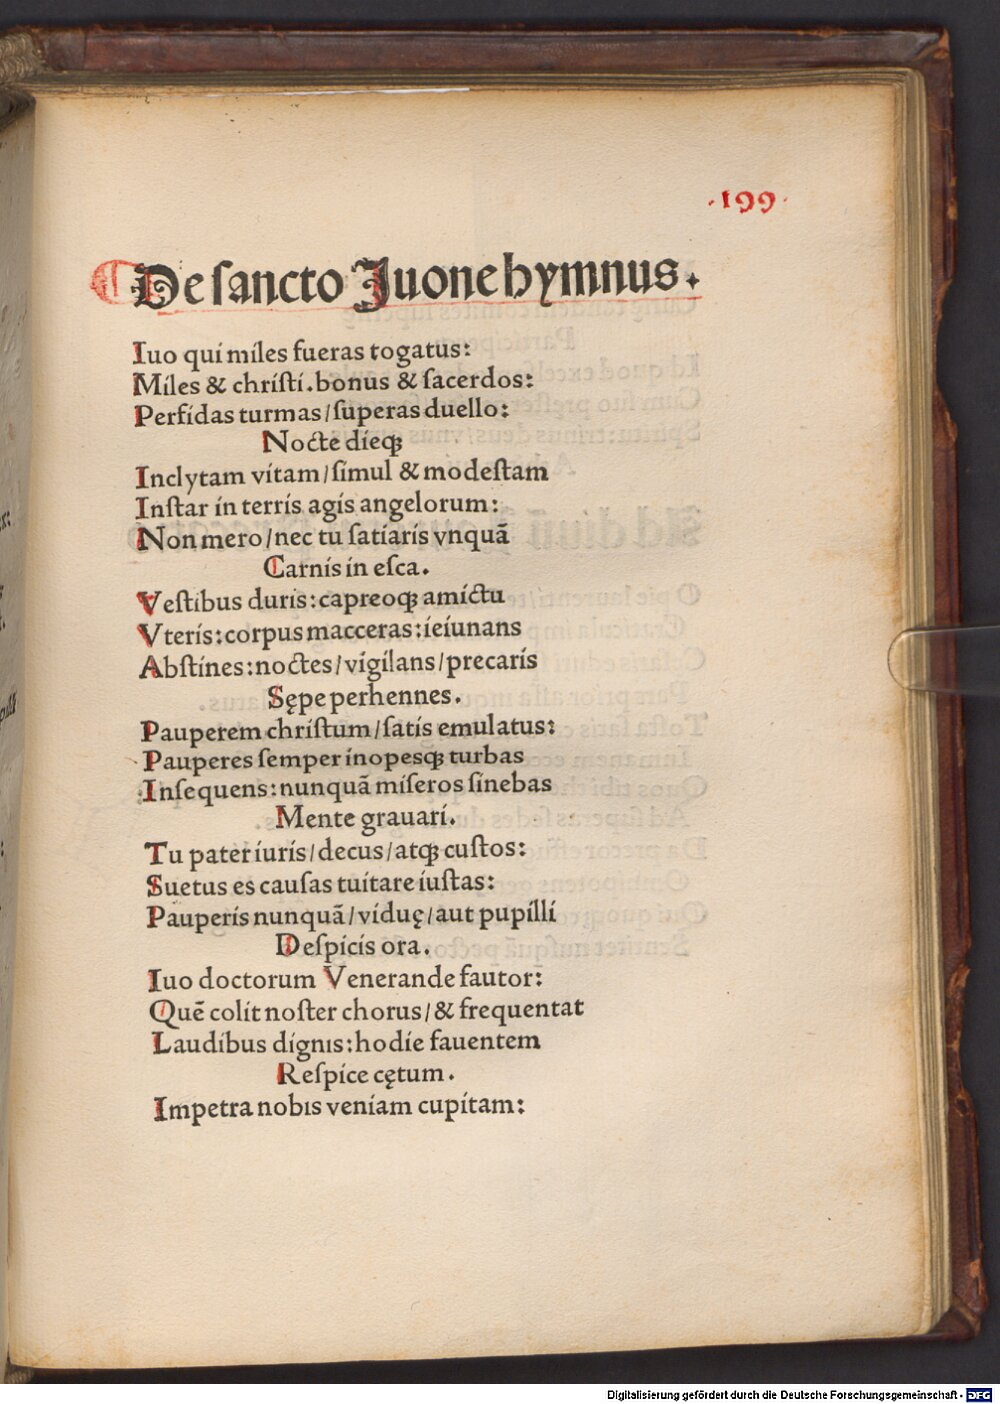 ·199·
De sancto Juone hymnus.
Iuo qui miles fueras togatus:
Miles & christi. bonus & sacerdos:
Perfidas turmas/superas duello:
Nocte dieqꝫ
Inclytam vitam/simul & modestam
Instar in terris agis angelorum:
Non mero/nec tu satiaris vnquã
Carnis in esca.
Vestibus duris: capreoqꝫ amictu
Vteris: corpus macceras: ieiunans
Abstines: noctes/vigilans/precaris
Sępe perhennes.
Pauperem christum/satis emulatus:
Pauperes semper inopesqꝫ turbas
Insequens: nunquã miseros sinebas
Mente grauari.
Tu pater iuris/decus/atqꝫ custos:
Suetus es causas tuitare iustas:
Pauperis nunquã/viduę/aut pupilli
Despicis ora.
Iuo doctorum Venerande fautor:
Quẽ colit noster chorus/& frequentat
Laudibus dignis: hodie fauentem
Respice cętum.
Impetra nobis veniam cupitam:
Digitalisierung gefördert durch die Deutsche Forschungsgemeinschaft - DFG